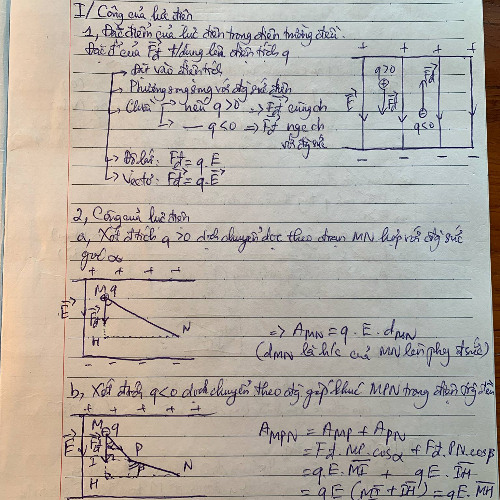 I/ Công của lực điện
1, Đặc điểm của lực điện trong điện trường đều.
Đặc đ' của F⃗đ t/dụng lên điện tích q
Đặt vào điện tích
Phương song song với đg sức điện
Chiều nếu q>0 => F⃗đ cùng ch
q<0 => F⃗đ ngc ch
với đg sức
Độ lớn: Fđ = q.E
Vectơ: F⃗đ = q.E⃗
+ + + +
q>0
F⃗đ
F⃗đ
E⃗
q<0
- - - -
2, Công của lực điện
a, Xét đ tích q>0 dịch chuyển dọc theo đoạn MN hợp với đg sức
góc α
+ + + +
M q
E⃗
F⃗đ
H N
- - - -
=> A_MN = q.E.d_MN
(d_MN là h/c của MN lên phg đ sức)
b, Xét đ tích q<0 dịch chuyển theo đg gấp khúc MPN trong điện trg đều
+ + + +
M q
E⃗
F⃗đ
P
I
H N
A_MPN = A_MP + A_PN
= Fđ.MP.cosα + Fđ.PN.cosβ
= q.E.MI + q.E.IH
= q.E (MI + IH) = q.E.MH